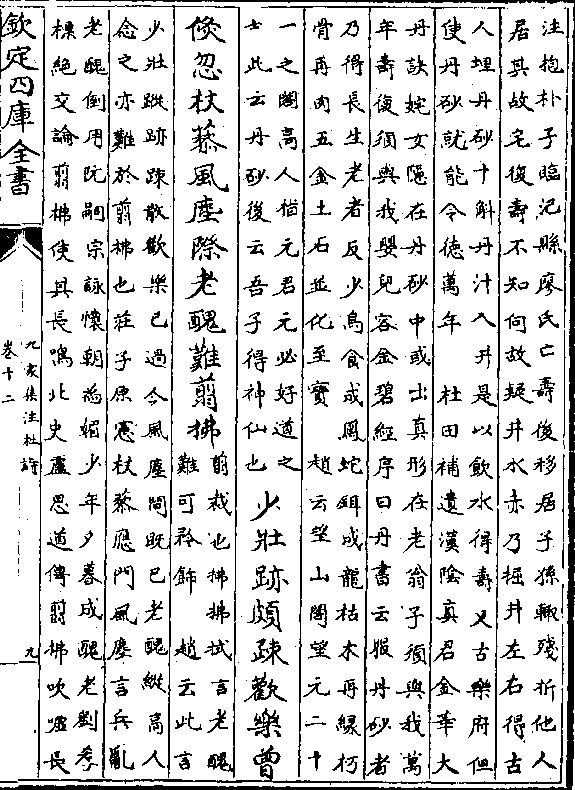 注抱朴子臨汜縣廖氏亡壽後移居子孫輙殘折他人
居其故宅復壽不知何故疑井水赤乃掘井左右得古
人埋丹砂十斛丹汁入井是以飲水得壽又古樂府但
使丹砂就能令徳萬年　杜田補遺漢陰真君金華大
丹訣姹女隱在丹砂中或出真形在老翁子須與我萬
年壽復須與我嬰兒容金碧經序曰丹書云服丹砂者
乃得長生老者反少鳥食成鳳蛇餌成龍枯木再緑朽
骨再肉五金土石並化至寳　趙云望山閣望元二十
一之閣高人指元君元必好道之
士此云丹砂後云吾子得神仙也　少壯跡頗疎歡樂曾
倐忽杖藜風塵際老醜難翦拂
翦裁也拂拂拭言老醜
難可矜飾　趙云此言
少壯蹤跡疎散歡樂已過今風塵間既已老醜縱高人
念之亦難於翦拂也莊子原憲杖藜應門風塵言兵亂
老醜倒用阮嗣宗詠懷朝為媚少年夕暮成醜老劉孝
標絶交論翦拂使其長鳴北史盧思道傳翦拂吹嘘長
欽定四庫全書
九家集注杜詩
卷十二
九